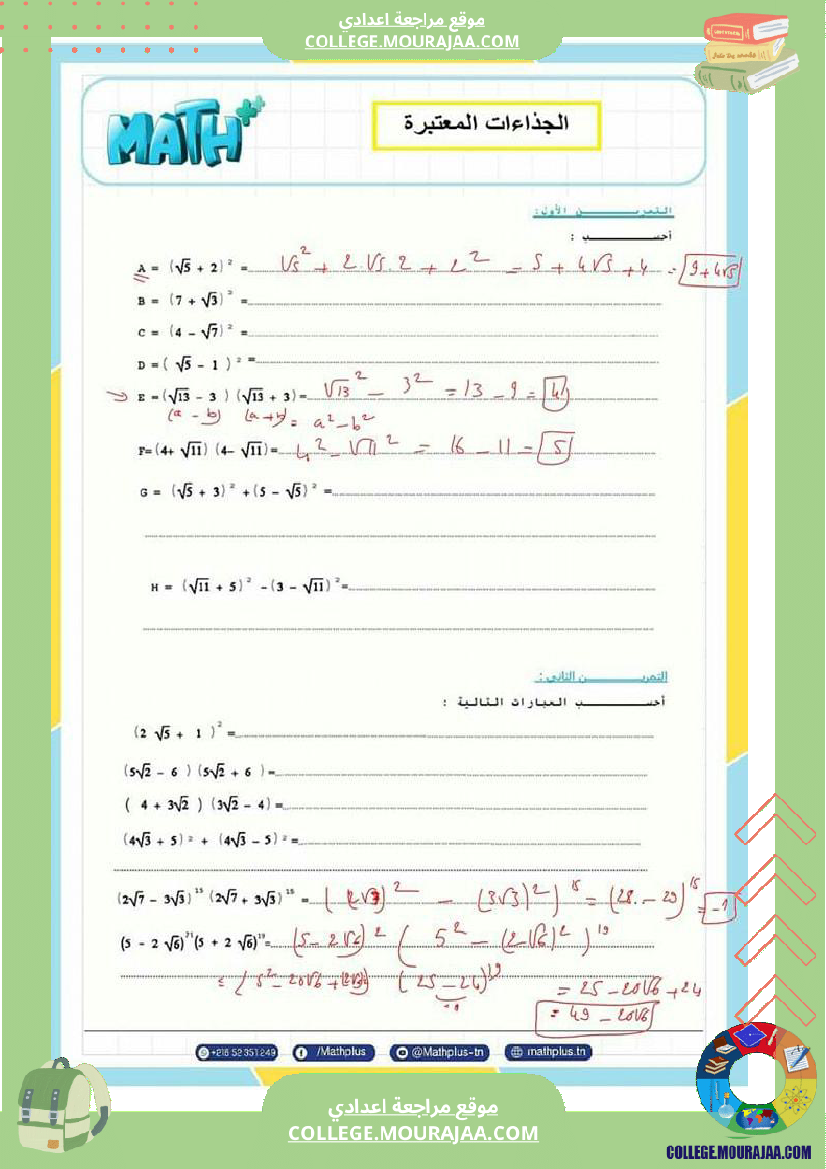 موقع مراجعة اعدادي
COLLEGE.MOURAJAA.COM
MATH++
الجذاءات المعتبرة
التمريـــــن الأول:
أحســـــب :
A = (√5 + 2)² = √5² + 2.√5.2 + 2² = 5 + 4√5 + 4 = 9+4√5
B = (7 + √3)² =
C = (4 - √7)² =
D = ( √5 - 1 )² =
→ E = (√13 - 3 ) (√13 + 3) = √13² - 3² = 13 - 9 = 4
(a - b) (a + b) = a² - b²
F= (4+ √11) (4- √11)= 4² - √11² = 16 - 11 = 5
G = (√5 + 3)² + (5 - √5)² =
H = (√11 + 5)² - (3 - √11)² =
التمريـــــن الثاني :
أحســـــب العبارات التالية :
(2 √5 + 1 )² =
(5√2 - 6 ) (5√2 + 6 ) =
( 4 + 3√2 ) (3√2 - 4) =
(4√3 + 5)² + (4√3 - 5)² =
(2√7 - 3√3)¹⁵ (2√7 + 3√3)¹⁵ = ² - (3√3)² )¹⁵ = (28 - 29)¹⁵ = -1
(5 - 2 √6)²¹ (5 + 2 √6)¹⁹ = (5 - 2√6)² ( 5² - (2√6)² )¹⁹
= ( 5² - 20√6 + (25 - 24)¹⁹ = 25 - 20√6 + 24
= 49 - 20√6
+216 52 351 249 /Mathplus @Mathplus-tn mathplus.tn
موقع مراجعة اعدادي
COLLEGE.MOURAJAA.COM
COLLEGE.MOURAJAA.COM